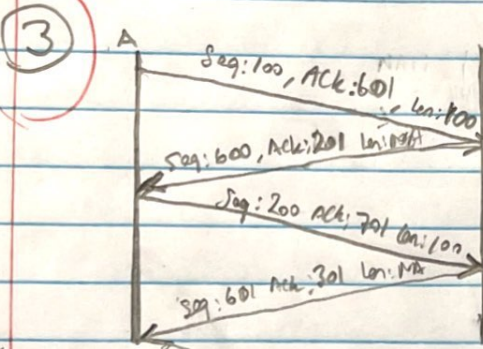 3
A
Seq:100, ACK:601, Len:100
Seq:600, Ack:201 Len:NA
Seq:200 ACK:701 Len:100
Seq:601 Ack:301 Len:NA